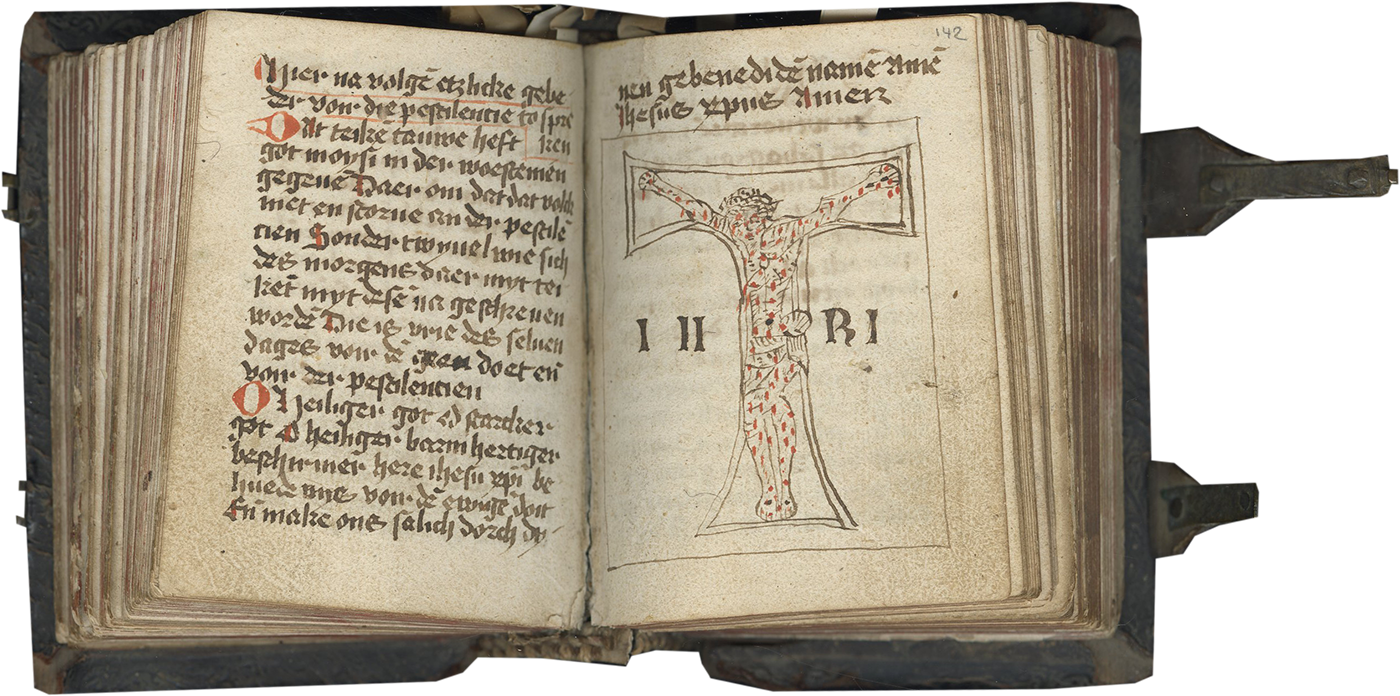 Hier na volgē etzlicke gebe
der von die pestilentie to spre
ken
Dat teike tauwe heft
got moysi in der woestenien
gegeue Daer om dat dat volck
niet en storue an der pestilē
tien Sonder twyuel wie sich
des morgens daer myt tei
ket myt desē na geschreuen
wordē Die is vrie des seluen
dages von dē gaen doet eñ
von der pestilentien
O Heiliger got O starcker
got O heiliger barmhertiger
beschirmer here ihesu xpi be
huede uns von dē ewigē doit
Eñ make ons salich dorch dy
142
nen gebenedidē namē Amē
Ihesus xpus Amen
I N RI